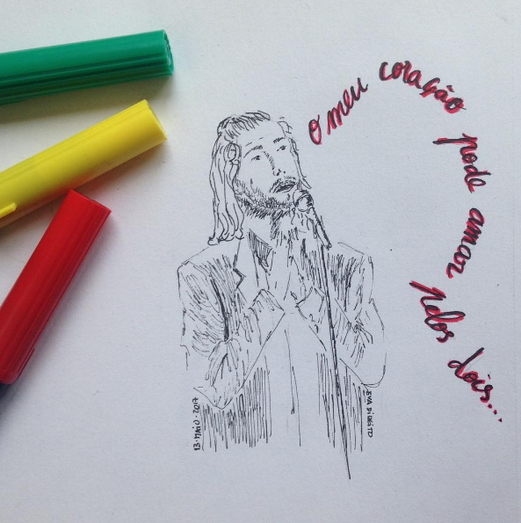 O meu coração pode amar pelos dois...
13·MAIO·2017